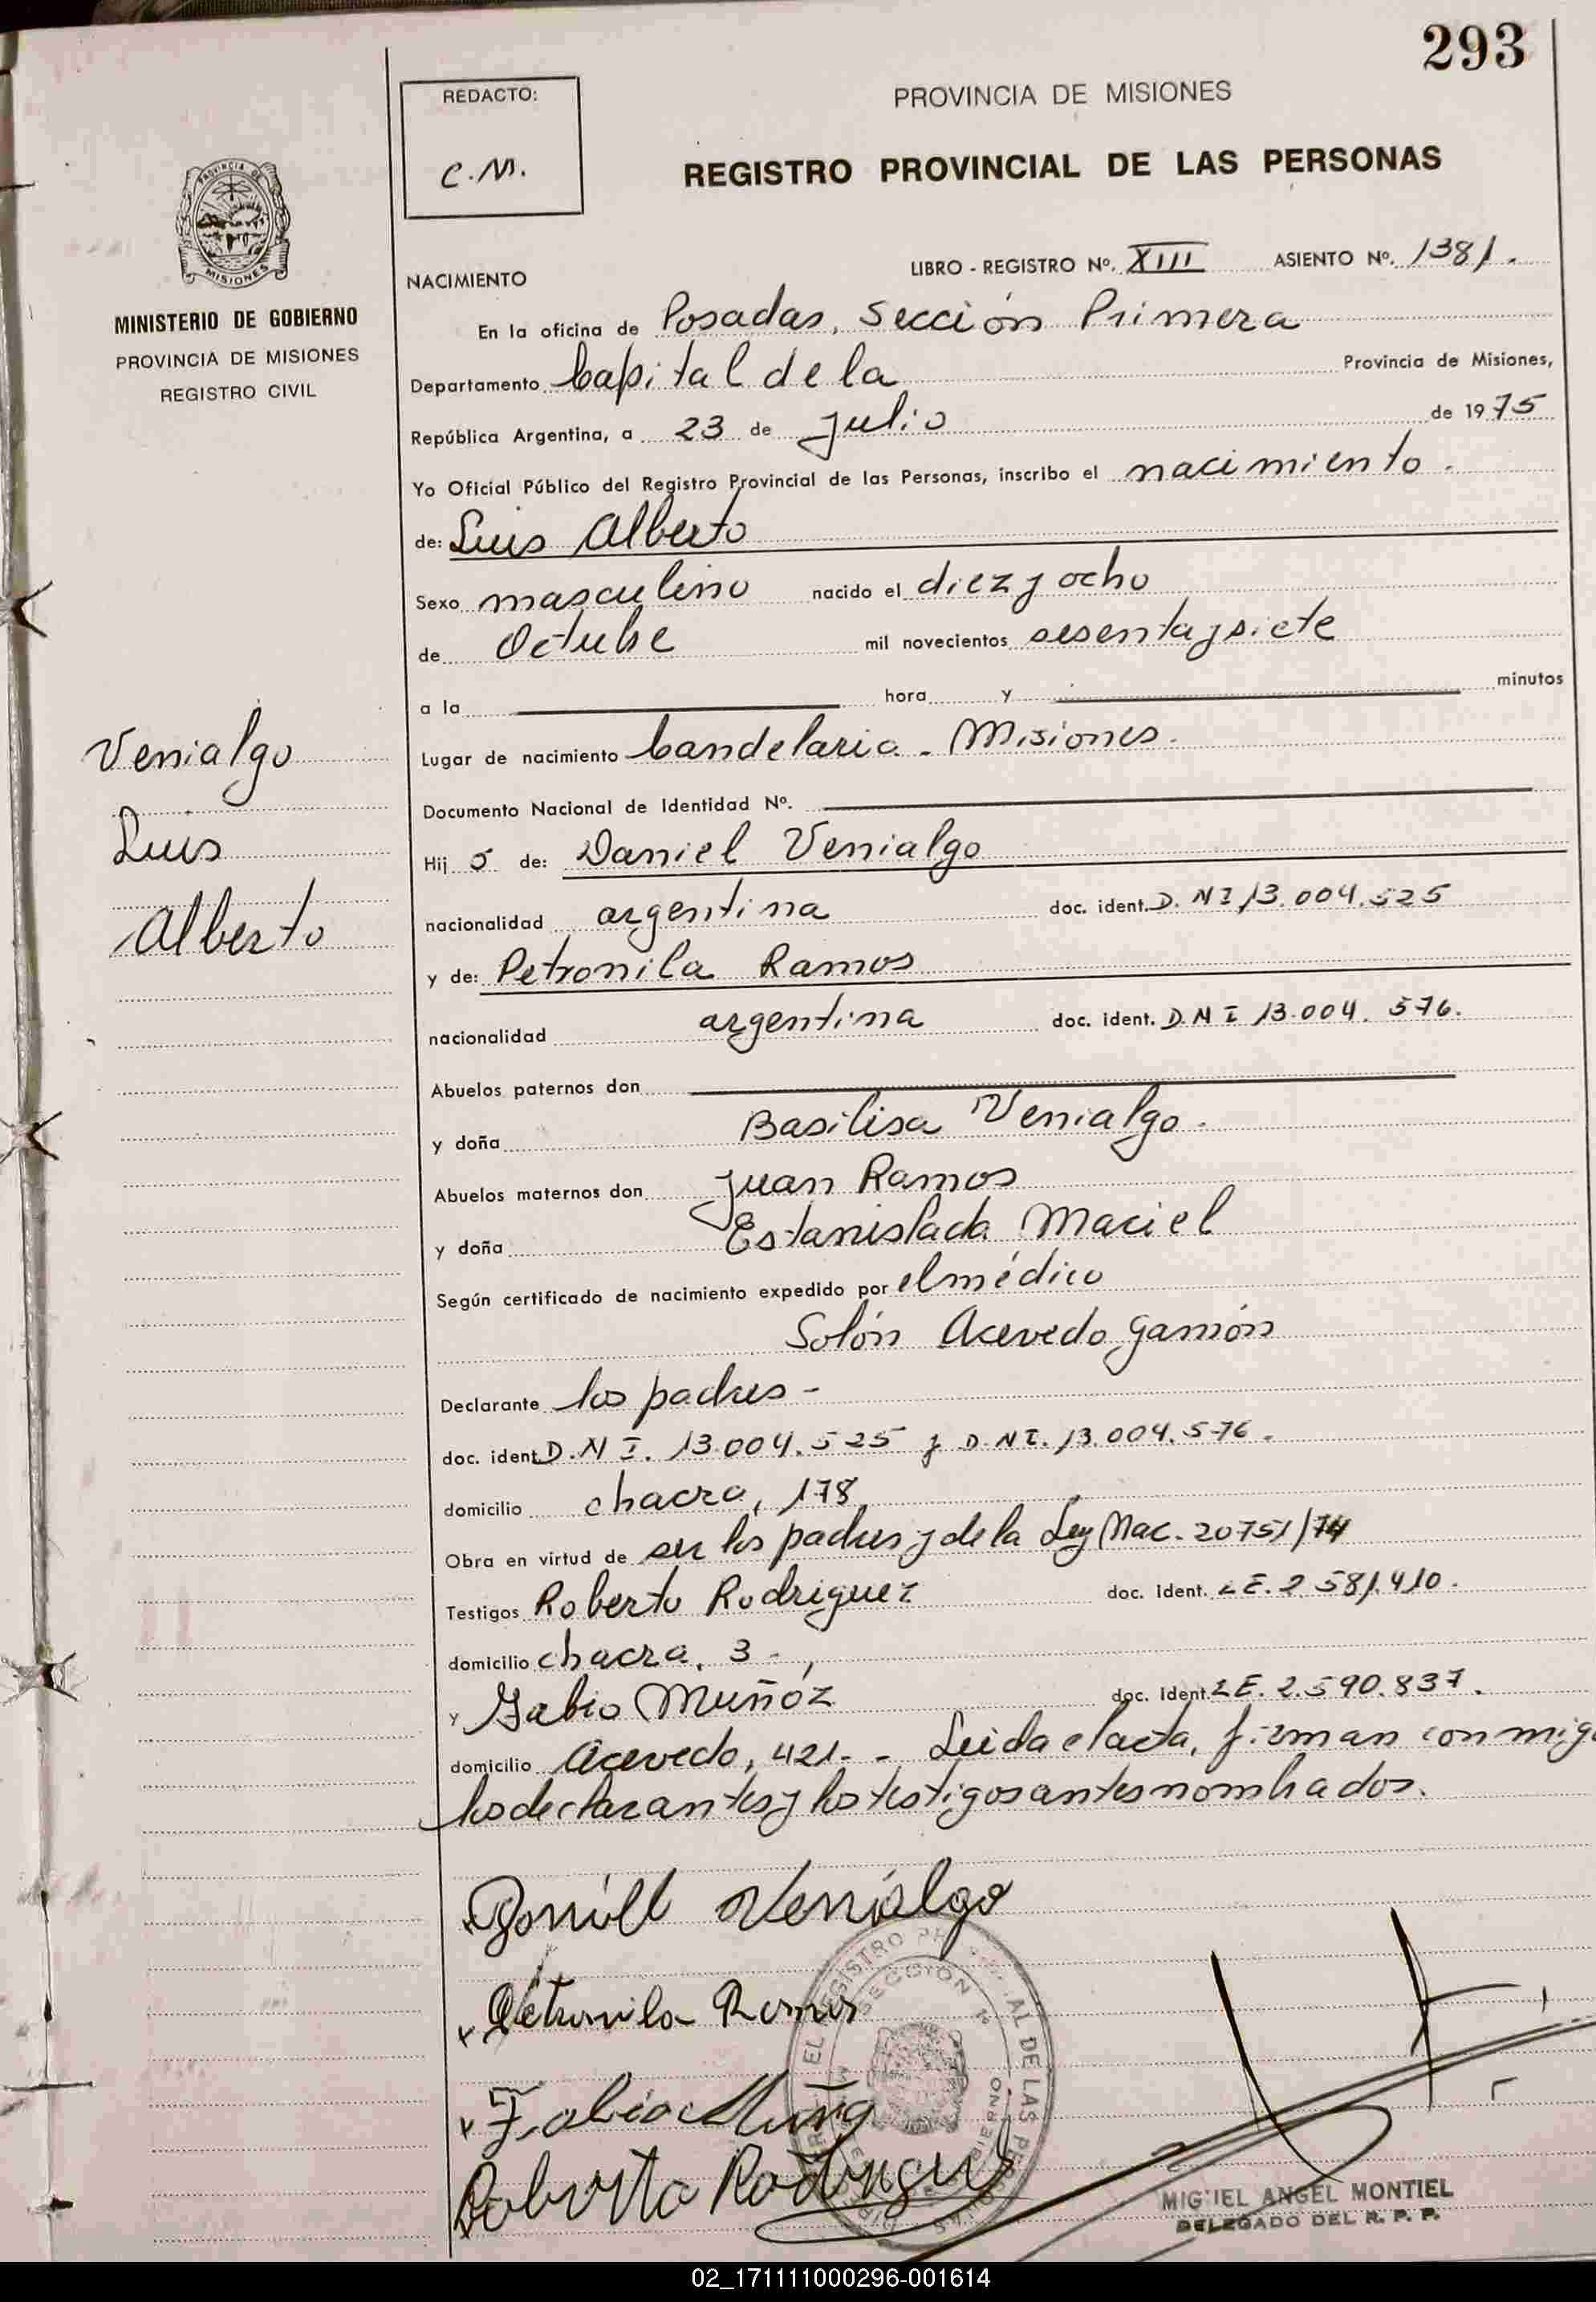 293
REDACTO:
C.M.
PROVINCIA DE MISIONES
REGISTRO PROVINCIAL DE LAS PERSONAS
PROVINCIA DE MISIONES
MINISTERIO DE GOBIERNO
PROVINCIA DE MISIONES
REGISTRO CIVIL
LIBRO - REGISTRO Nº. XIII ASIENTO Nº. 1381.
NACIMIENTO
En la oficina de Posadas, Sección Primera
Departamento Capital de la Provincia de Misiones,
República Argentina, a 23 de Julio de 1975
Yo Oficial Público del Registro Provincial de las Personas, inscribo el nacimiento.
de: Luis Alberto
Sexo masculino nacido el diez y ocho
de Octubre mil novecientos sesenta y siete
a la hora y minutos
Venialgo
Luis
Alberto
Lugar de nacimiento Candelaria - Misiones.
Documento Nacional de Identidad Nº.
Hij o de: Daniel Venialgo
nacionalidad argentina doc. ident. D.N I 13.004.525
y de: Petronila Ramos
nacionalidad argentina doc. ident. D.N I 13.004.576.
Abuelos paternos don
y doña Basilisa Venialgo.
Abuelos maternos don Juan Ramos
y doña Estanislada Maciel
Según certificado de nacimiento expedido por el médico
Solón Acevedo
Declarante los padres -
doc. ident. D.N I. 13.004.525 y D.N I. 13.004.576.
domicilio chacra, 178
Obra en virtud de ser los padres y de la Ley Nac. 20751/74
Testigos Roberto Rodriguez doc. ident. L E. 2 581.410.
domicilio chacra, 3 -
y Fabio Muñóz doc. ident. L E. 2.590.837.
domicilio Acevedo, 421. - Leida el acta, firman conmigo
los declarantes y los testigos antes nombrados.
Daniel Venialgo
Petronila Ramos
Fabio Muñoz
Roberto Rodriguez
SECCION 1ª
MIGUEL ANGEL MONTIEL
DELEGADO DEL R. P. P.
02_171111000296-001614